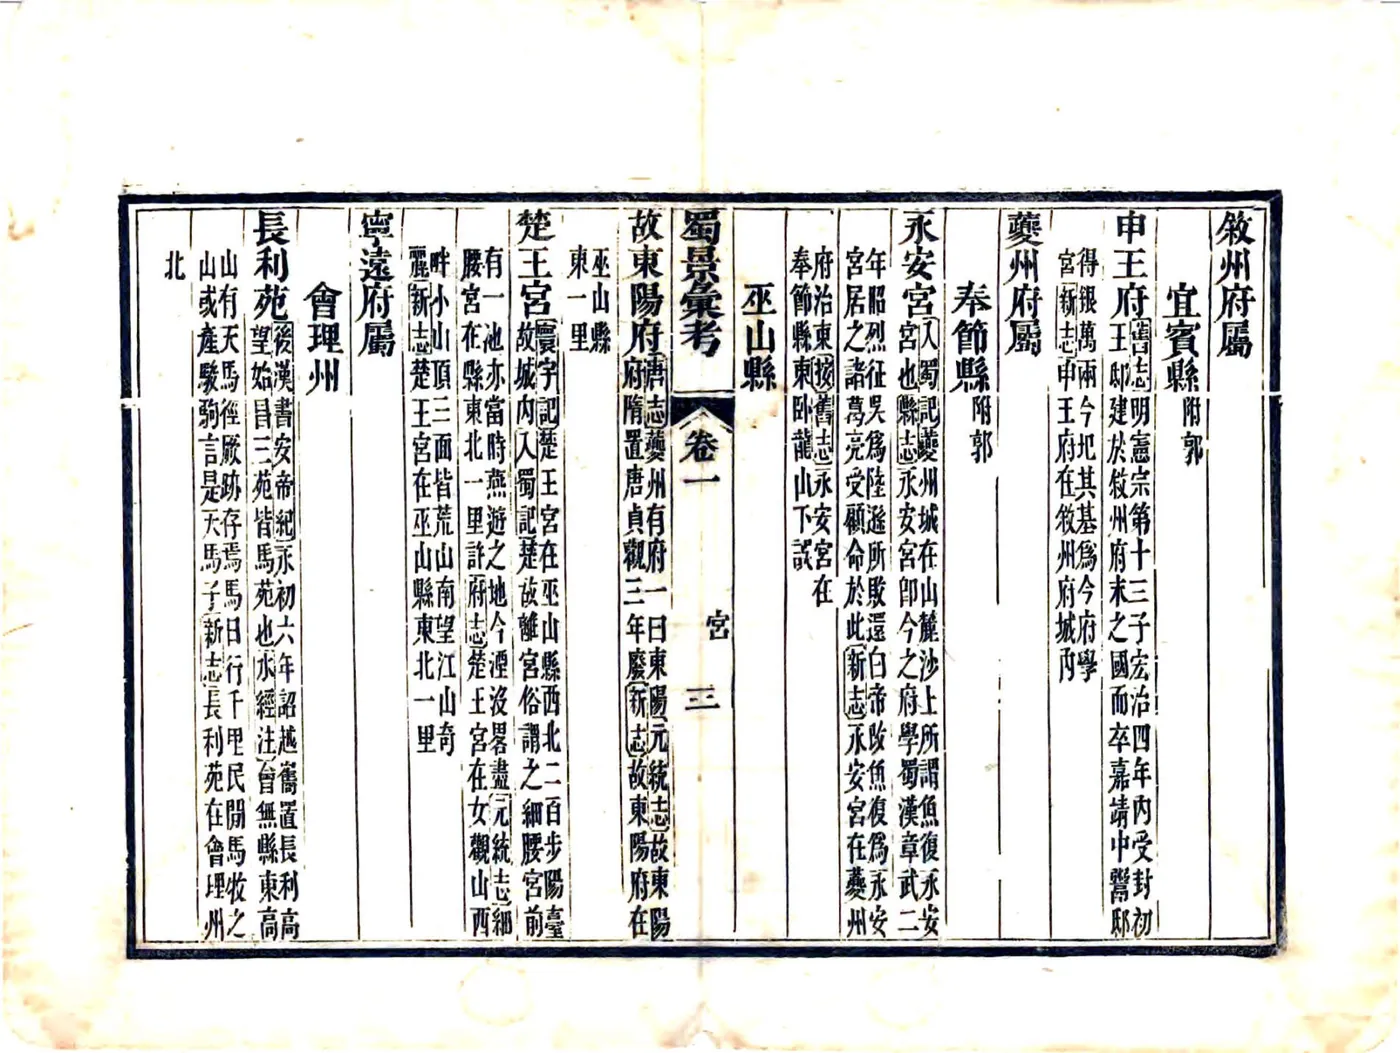 敘州府屬
宜賓縣附郭
申王府舊志明憲宗第十三子宏治四年內受封初
王邸建於敘州府未之國而卒嘉靖中鬻邸
得銀萬兩今圯其基爲今府學
宮新志申王府在敘州府城內
夔州府屬
奉節縣附郭
永安宮入蜀記夔州城在山麓沙上所謂魚復永安
宮也縣志永安宮卽今之府學蜀漢章武二
年昭烈征吳爲陸遜所敗還白帝改魚復爲永安
宮居之諸葛亮受顧命於此新志永安宮在夔州
府治東按舊志永安宮在
奉節縣東臥龍山下誤
巫山縣
蜀景彙考 卷一 宮 三
故東陽府唐志夔州有府一曰東陽元統志故東陽
府隋置唐貞觀三年廢新志故東陽府在
巫山縣
東一里
楚王宮寰宇記楚王宮在巫山縣西北二百步陽臺
故城內入蜀記楚故離宮俗謂之細腰宮前
有一池亦當時燕遊之地今湮沒畧盡元統志細
腰宮在縣東北一里許府志楚王宮在女觀山西
畔小山頂三面皆荒山南望江山奇
麗新志楚王宮在巫山縣東北一里
寧遠府屬
會理州
長利苑後漢書安帝紀永初六年詔越巂置長利高
望始昌三苑皆馬苑也水經注會無縣東高
山有天馬徑厥跡存焉馬日行千里民間馬牧之
山或產駿駒言是天馬子新志長利苑在會理州
北